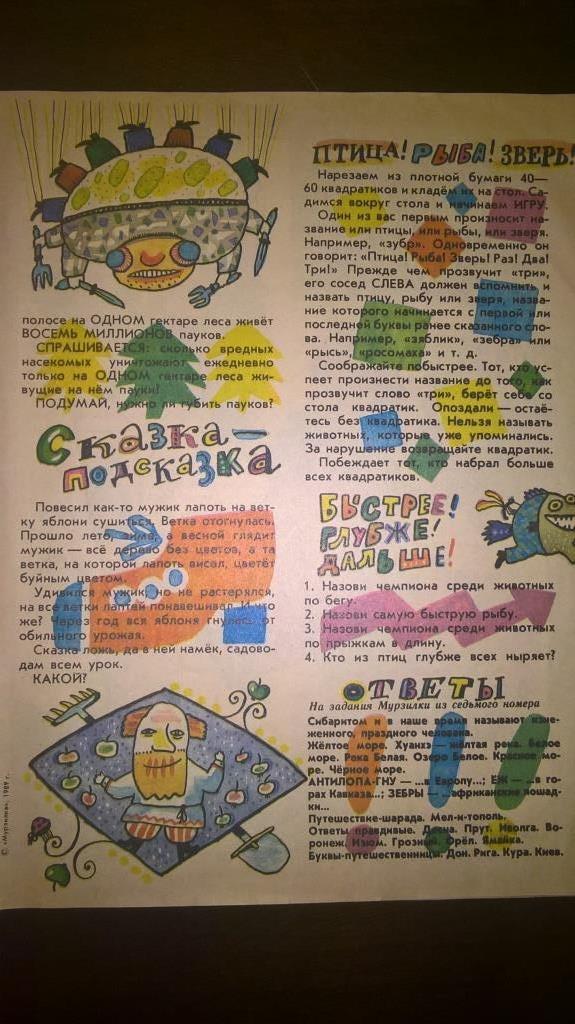 полосе на ОДНОМ гектаре леса живёт
ВОСЕМЬ МИЛЛИОНОВ пауков.
СПРАШИВАЕТСЯ: сколько вредных
насекомых уничтожают ежедневно
только на ОДНОМ гектаре леса жи-
вущие на нём пауки?
ПОДУМАЙ, нужно ли губить пауков?
Сказка—
подсказка
Повесил как-то мужик лапоть на вет-
ку яблони сушиться. Ветка отогнулась.
Прошло лето, зима, а весной глядит
мужик — всё дерево без цветов, а та
ветка, на которой лапоть висел, цветёт
буйным цветом.
Удивился мужик, но не растерялся,
на все ветки лаптей понавешивал. И что
же? Через год вся яблоня гнулась от
обильного урожая.
Сказка ложь, да в ней намёк, садово-
дам всем урок.
КАКОЙ?
© «Мурзилка», 1989 г.
ПТИЦА! РЫБА! ЗВЕРЬ!
Нарезаем из плотной бумаги 40—
60 квадратиков и кладём их на стол. Са-
димся вокруг стола и начинаем ИГРУ.
Один из вас первым произносит на-
звание или птицы, или рыбы, или зверя.
Например, «зубр». Одновременно он
говорит: «Птица! Рыба! Зверь! Раз! Два!
Три!» Прежде чем прозвучит «три»,
его сосед СЛЕВА должен вспомнить и
назвать птицу, рыбу или зверя, назва-
ние которого начинается с первой или
последней буквы ранее сказанного сло-
ва. Например, «зяблик», «зебра» или
«крыса», «росомаха» и т. д.
Соображайте побыстрее. Тот, кто ус-
пеет произнести название до того, как
прозвучит слово «три», берёт себе со
стола квадратик. Опоздали — остаё-
тесь без квадратика. Нельзя называть
животных, которые уже упоминались.
За нарушение возвращайте квадратик.
Побеждает тот, кто набрал больше
всех квадратиков.
БЫСТРЕЕ!
ГЛУБЖЕ!
ДАЛЬШЕ!
1. Назови чемпиона среди животных
по бегу.
2. Назови самую быструю рыбу.
3. Назови чемпиона среди животных
по прыжкам в длину.
4. Кто из птиц глубже всех ныряет?
ОТВЕТЫ
На задания Мурзилки из седьмого номера
Сибаритом и в наше время называют изне-
женного, праздного человека.
Жёлтое море. Хуанхэ — жёлтая река. Белое
море. река Белая. Озеро Белое. Красное мо-
ре. Чёрное море.
АНТИЛОПА-ГНУ — ...в Европу...; ЁЖ — ...в го-
рах Кавказа...; ЗЕБРЫ — ...африканских площад-
ки...
Путешествие-шарада. Мел-и-тополь.
Ответы правдивые. Двина. Прут. Иволга. Во-
ронеж. Изюм. Грозный. Орёл. Ялайка.
Буквы-путешественницы. Дон. Рига. Кура. Киев.